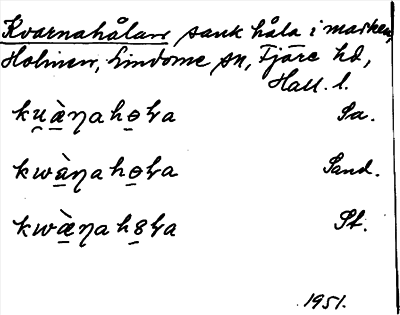 Kvarnahålan sank håla i marken,
Holmen, Lindome sn, Fjäre hd,
Hall. l.
ku̯æ̀ɳahɵɽa Sa.
kwæ̀ɳahɵɽa Sand.
kwæ̀ɳahɞɽa St.
1951.